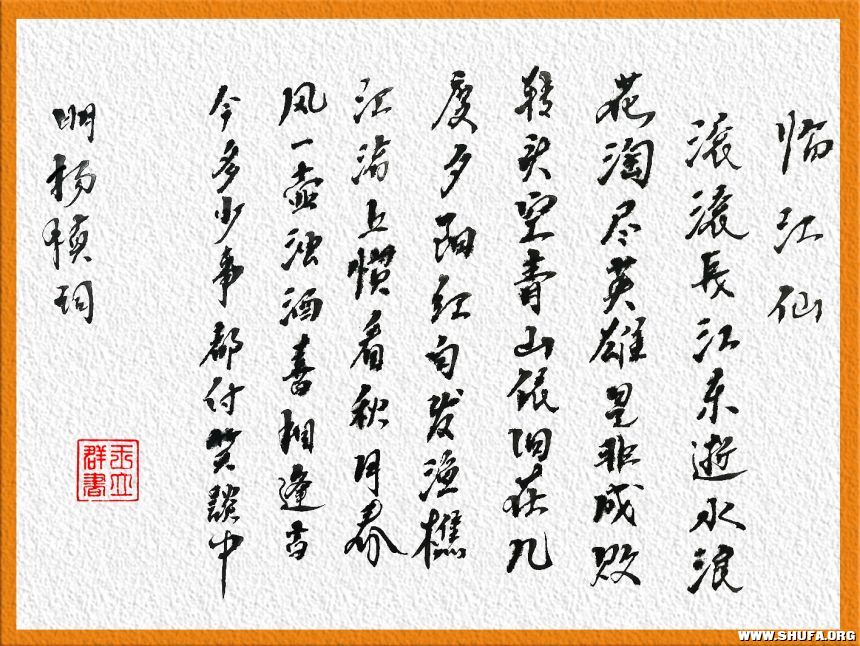 临江仙
滚滚長江东逝水浪
花淘尽英雄是非成败
转头空青山依旧在几
度夕阳红白发渔樵
江渚上惯看秋月春
风一壶浊酒喜相逢古
今多少事都付笑谈中
明杨慎词
群書
WWW.SHUFA.ORG